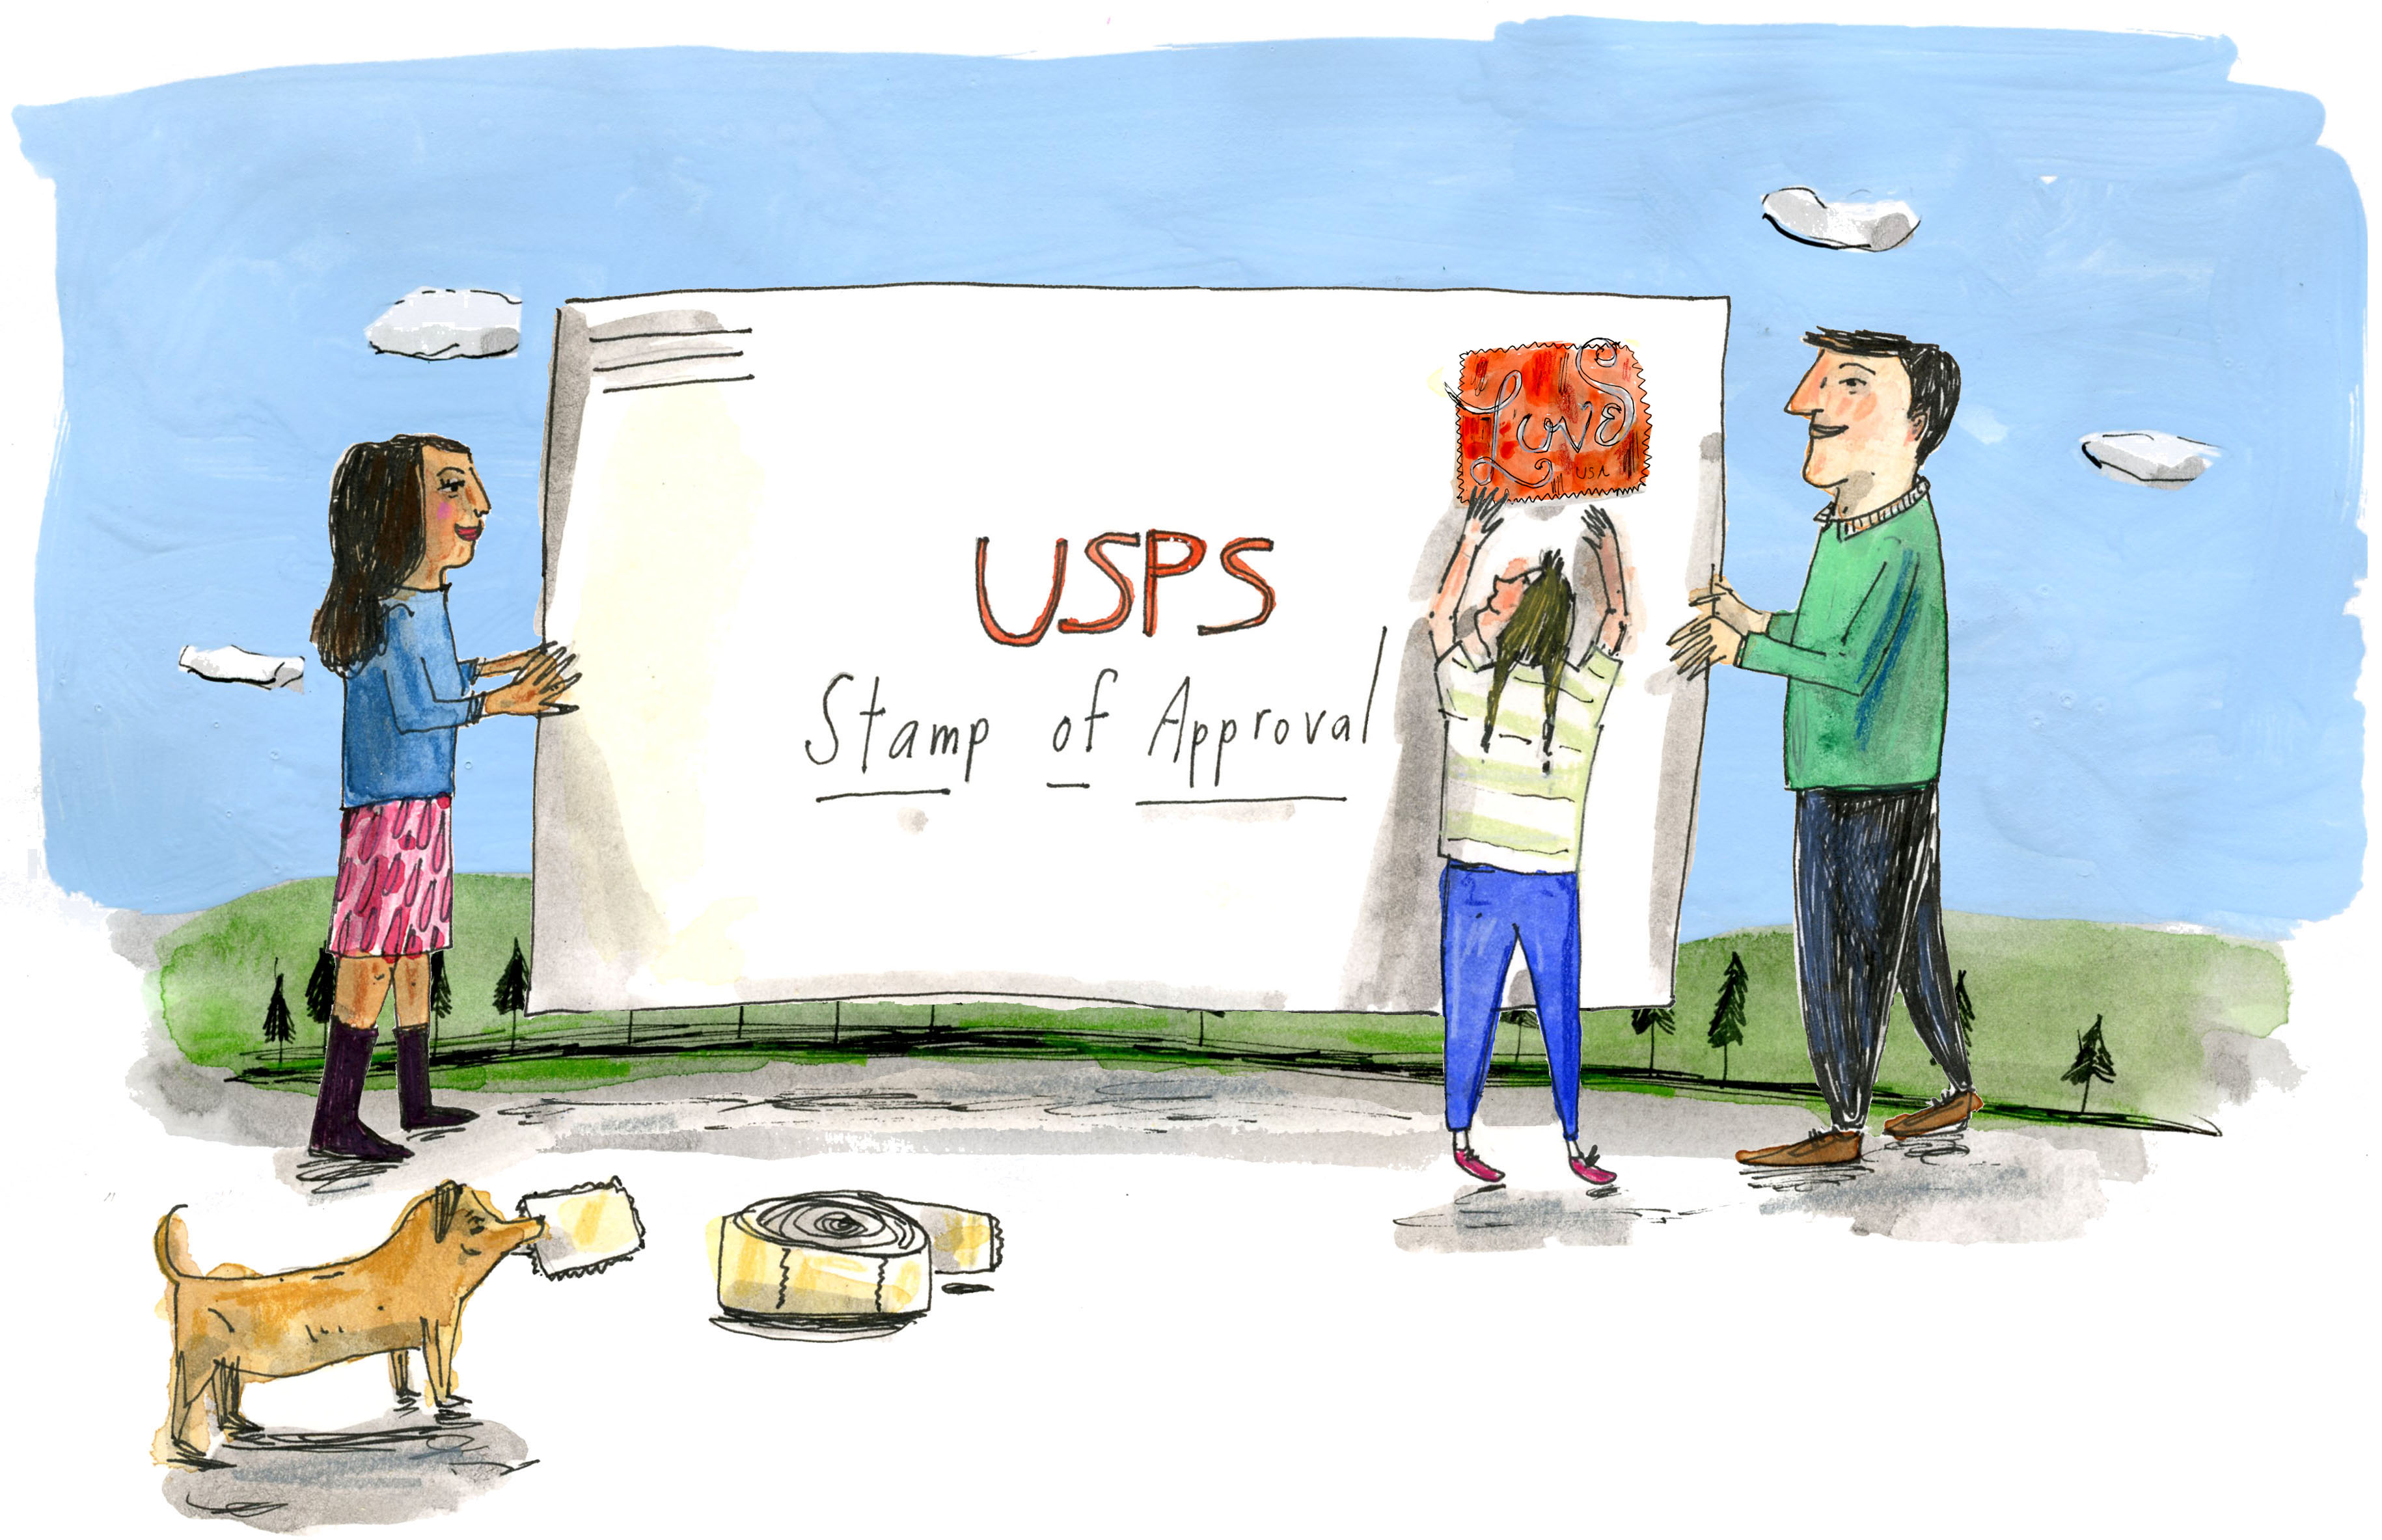 Love
USA
USPS
Stamp of Approval